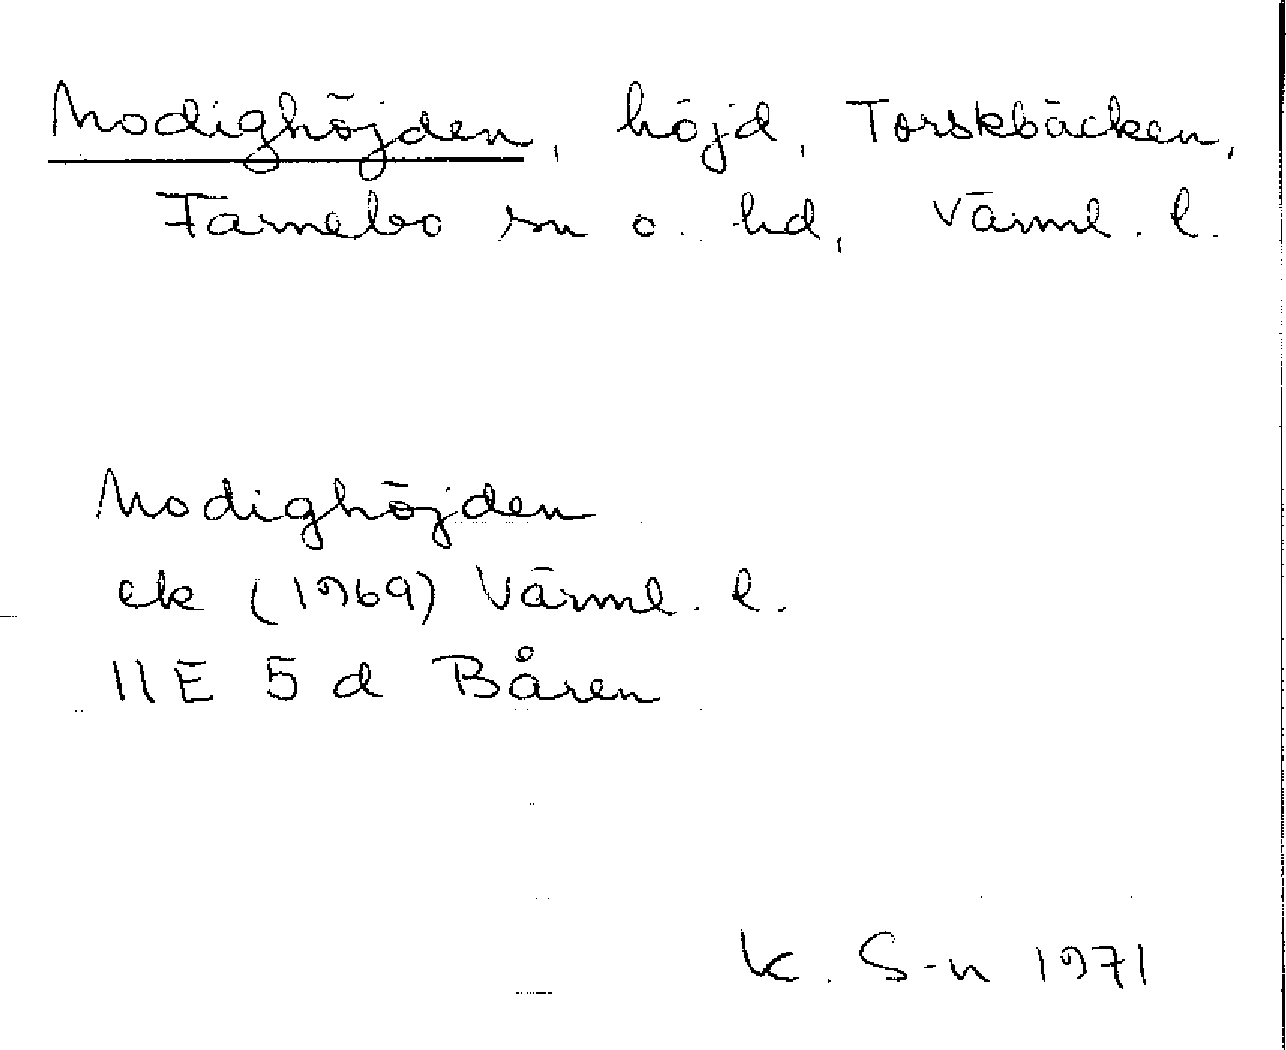 Modighöjden, höjd, Torskbäcken,
Färnebo sn o. hd, Värml. l.
Modighöjden
ek (1969) Värml. l.
11E 5 d Båren
K. S-n 1971